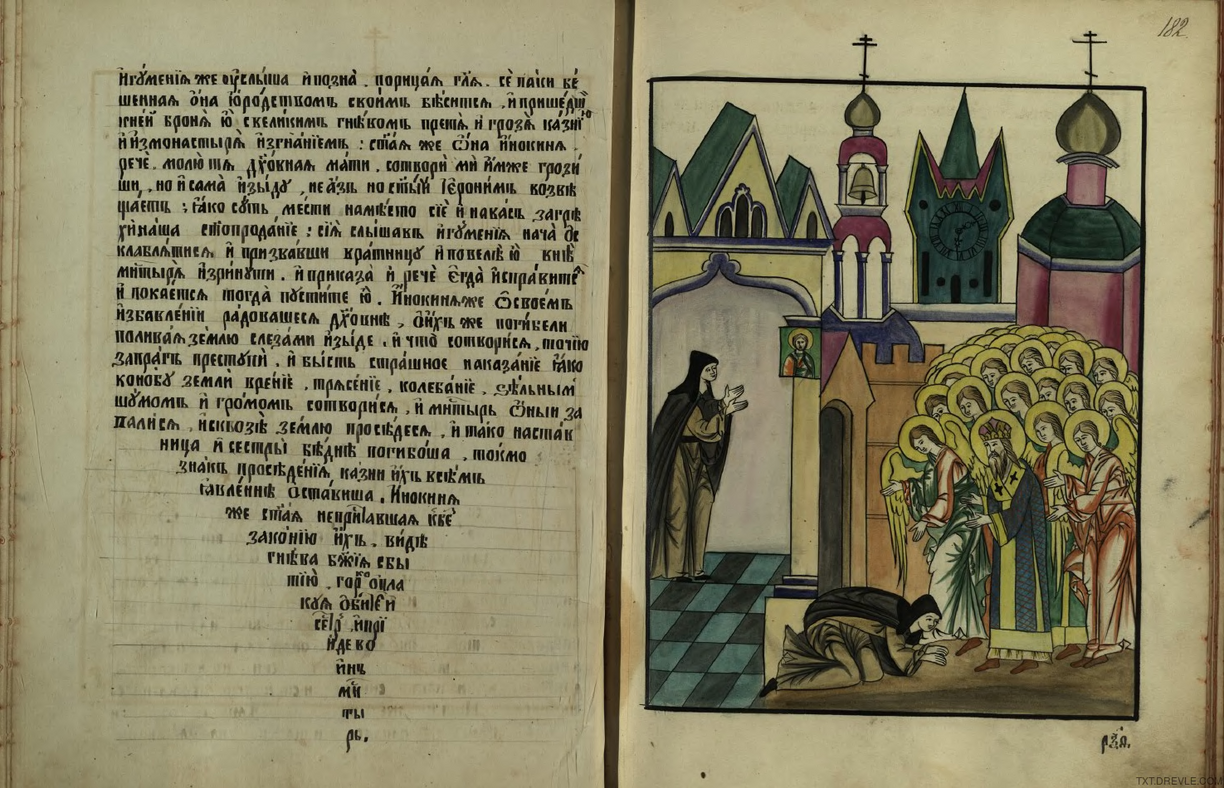 И҆гꙋ́менїѧ же ᲂу҆слы́ша и҆ позна̀ . порица́ѧ гл҃ѧ . сѐ па́ки бѣ́
шеннаѧ ѻ҆́на ю҆ро́дствомъ свои́мъ бѣ́ситсѧ , и҆ прише́дши
ю҆ с вели́кимъ гнѣ́вомъ претѧ̀ и҆ грозѧ̀ ка́знїю
и҆ и҆змонастырѧ̀ и҆згна́нїемъ : ст҃аѧ же ѻ҆́на и҆́нокинѧ .
речѐ . молю́ тѧ дх҃о́внаѧ ма́ти . сотворѝ мѝ и҆́мже грози́
ши . но и҆ сама̀ и҆зы́дꙋ , не а҆́зъ но ст҃ы́й І҆ерони́мъ возвѣ
ща́етъ : ꙗ҆́ко сꙋ́ть , ме́сти на мѣ́сто сїѐ и҆ нака́зъ за грѣ
хѝ на́ша ст҃опрода́нїе : сїѧ̀ слы́шавъ и҆гꙋ́менїѧ нача̀ ѻ҆
клаблѧ́тисѧ . и҆ призва́вши вра́тницꙋ и҆ повелѣ̀ ю҆̀ внѣ̀
мн҃тырѧ̀ и҆зри́нꙋти . и҆ приказа̀ и҆ речѐ є҆гда̀ и҆спра́витсѧ
и҆ пока́етсѧ тогда̀ пꙋсти́те ю҆̀ . И҆́нокинѧ же ѽ свое́мъ
и҆збавле́нїи ра́довашесѧ дх҃о́внѣ , ѽ и҆́хъ же поги́бели
полива́ѧ зе́млю слеза́ми и҆зы́де . и҆ что̀ сотвори́сѧ , то́чїю
пра́гъ престꙋпѝ . и҆ бы́сть стра́шное наказа́нїе ꙗ҆́ко
коно́бꙋ землѝ врѣ́нїе , трѧсе́нїе , колеба́нїе , ѕѣ́льнымъ
шꙋ́момъ и҆ гро́момъ сотвори́сѧ , и҆ мн҃тырь ѻ҆́ный за
пали́сѧ , и҆ сквозѣ̀ зе́млю просѣ́десѧ , и҆ та́ко наста́в
ница и҆ сестры̀ бѣ́днѣ погибо́ша , то́кмо
зна́къ просѣде́нїѧ , ка́зни и҆́хъ всѣ́мъ
ꙗ҆вле́ннѣ ѡ҆ста́виша . И҆́нокинѧ
же ст҃аѧ непрїѧ́вшаѧ къ бе
зако́нїю и҆́хъ . ви́дѣ
гнѣ́ва бж҃їѧ сбы
тїю̀ .
ѻ҆би́
и҆ прїи
и҆́де во
и҆́нъ
мн҃
ты
рь .
182
рꙁ҃ѧ .
TXT.DREVLE.COM